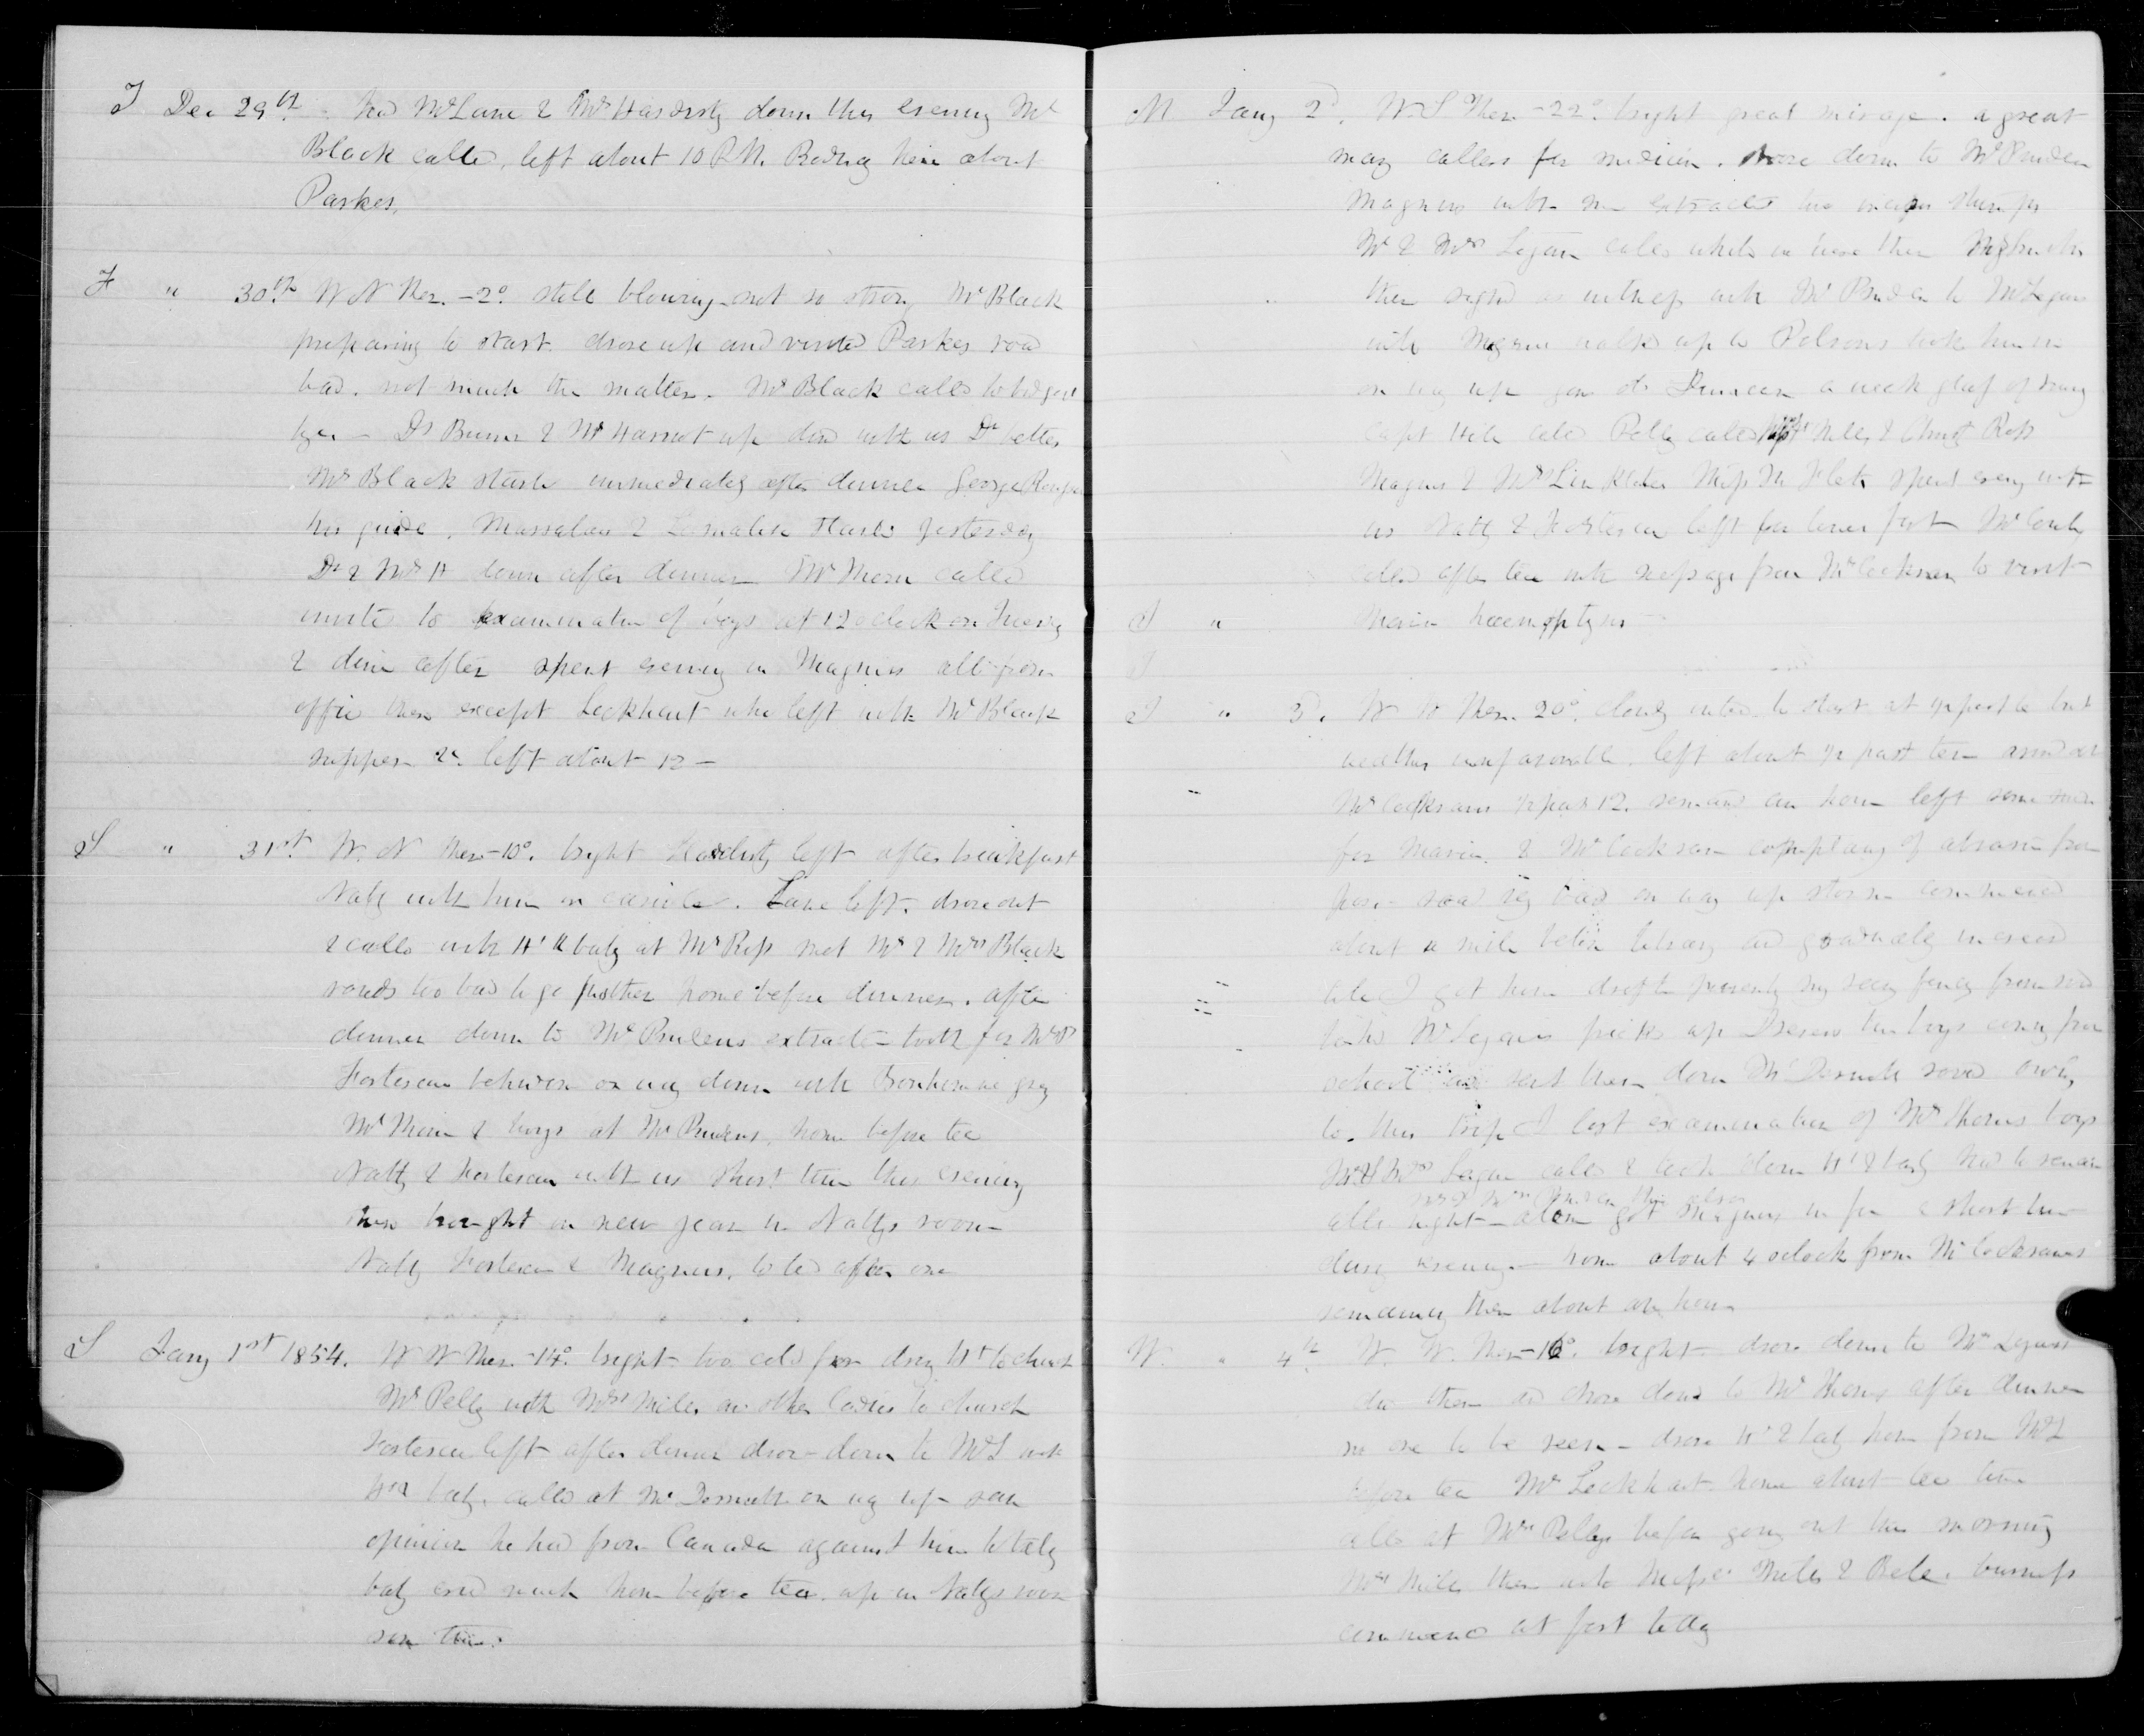 T Dec 29th had Mr Lane & Mr Hardisty down this evening Mr
Black called, left about 10 P.M. Rodney here about
Parkes,
F " 30th W N Ther. -2° still blowing not so strong Mr Black
preparing to start. drove up and visited Parkes road
bad. not much the matter. Mr Black called to bid good
bye - Dr Bunn & Mr up dined with us Dr better
Mr Black started immediately after dinner George
his guide. & started yesterday
Dr & Mr H down after dinner Mr Thom called
invited to examination of boys at 12 oclock on Tuesday
& dine after spent evening in Magnus all from
office there except Lockhart who left with Mr Black
supper &c. left about 12 -
S " 31st. W. N Ther -10°. bright Hardisty left after breakfast
Natty with him in cariole. Lane left. drove out
& called with Ht & baby at Mr Ross met Mr & Mrs Black
roads too bad to go further home before dinner. after
dinner down to Mr Prudens extracted tooth for Mrs P
Fortescue between on way down with grey
Mr Thom & boys at Mr Prudens, home before tea
Natty & Fortescue with us short time this evening
brought in new year in Nattys room
Natty Fortescue & Magnus. to bed after one
S Jany 1st 1854. W W Ther. -14°. bright too cold for Ht to church
Mr Pelly with Mrs Miles and other ladies to church
Fortescue left after dinner drove down to Mr L with
Ht & baby. called at McDermotts on way up saw
opinion he had from Canada against him totally
baby cried much home before tea. up in Nattys room
some time.
M Jany 2d. W. S Ther -22° bright great mirage. a great
many callers for medicine. drove down to Mr Pruden
Magnus with me extracted two there for
Mr & Mrs Logan called while we were there
then signed as witness with Mr Pruden to Mr Logans
with Magnus walked up to Polsons took him in
on way up gave old Duncan a glass of
Capt Hill called Pelly called Miles & Ross
Magnus & Mr Linklater Miss M Flett spent evening with
us Natty & Fortescue left for lower fort Mr
called after tea with message from Mr Cockran to visit
T " Maria haemoptysis
T
T " 3d. W W Ther. 20°. cloudy intended to start at ½ past 6 but
weather unfavorable. left about ½ past ten arrived at
Mr Cockrans ½ past 12. remained an hour left some
for Maria. & Mr Cockran complaining of
road very bad on way up storm commenced
about a mile below and gradually increased
till I got home drift preventing my seeing fences from road
Mr Logans picked up two boys coming from
school and sent them down McDermotts road owing
to this trip I lost examination of Mr Thoms boys
Mr & Mrs Logan called & took down Ht & baby had to remain
Mr & Mrs Pruden there also
all night - alone got Magnus in for a short time
during evening - home about 4 oclock from Mr Cockrans
remaining there about an hour
W. " 4th W. W. Ther -16°. bright drove down to Mr Logans
dined there and drove down to Mr Thoms after dinner
no one to be seen - drove Ht & baby home from Mr L
before tea Mr Lockhart home about tea time
called at Mrs Pellys before going out this morning
Mrs Miles there with Misses Miles & business
commenced at fort today